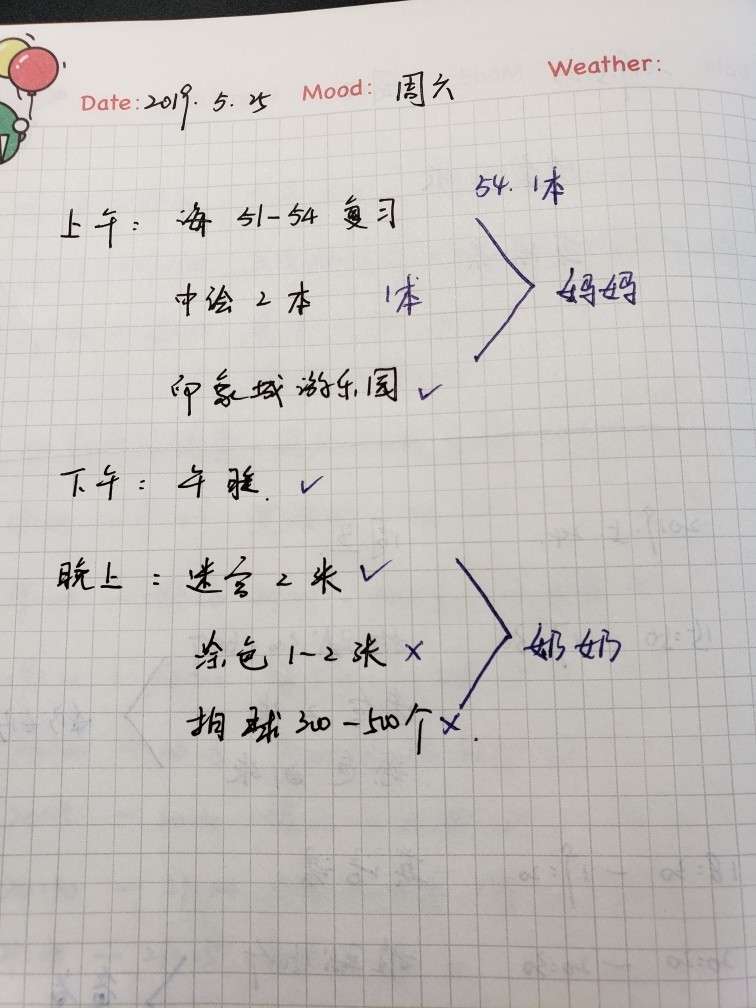 Weather:
Date: 2019. 5. 25 Mood: 周六
54. 1本
上午: 海 51-54 复习
中绘 2 本 1本 妈妈
印象城游乐园 ✓
下午: 午睡. ✓
晚上: 迷宫 2 张 ✓
涂色 1-2 张 × 奶奶
拍球 300-500个 ×.